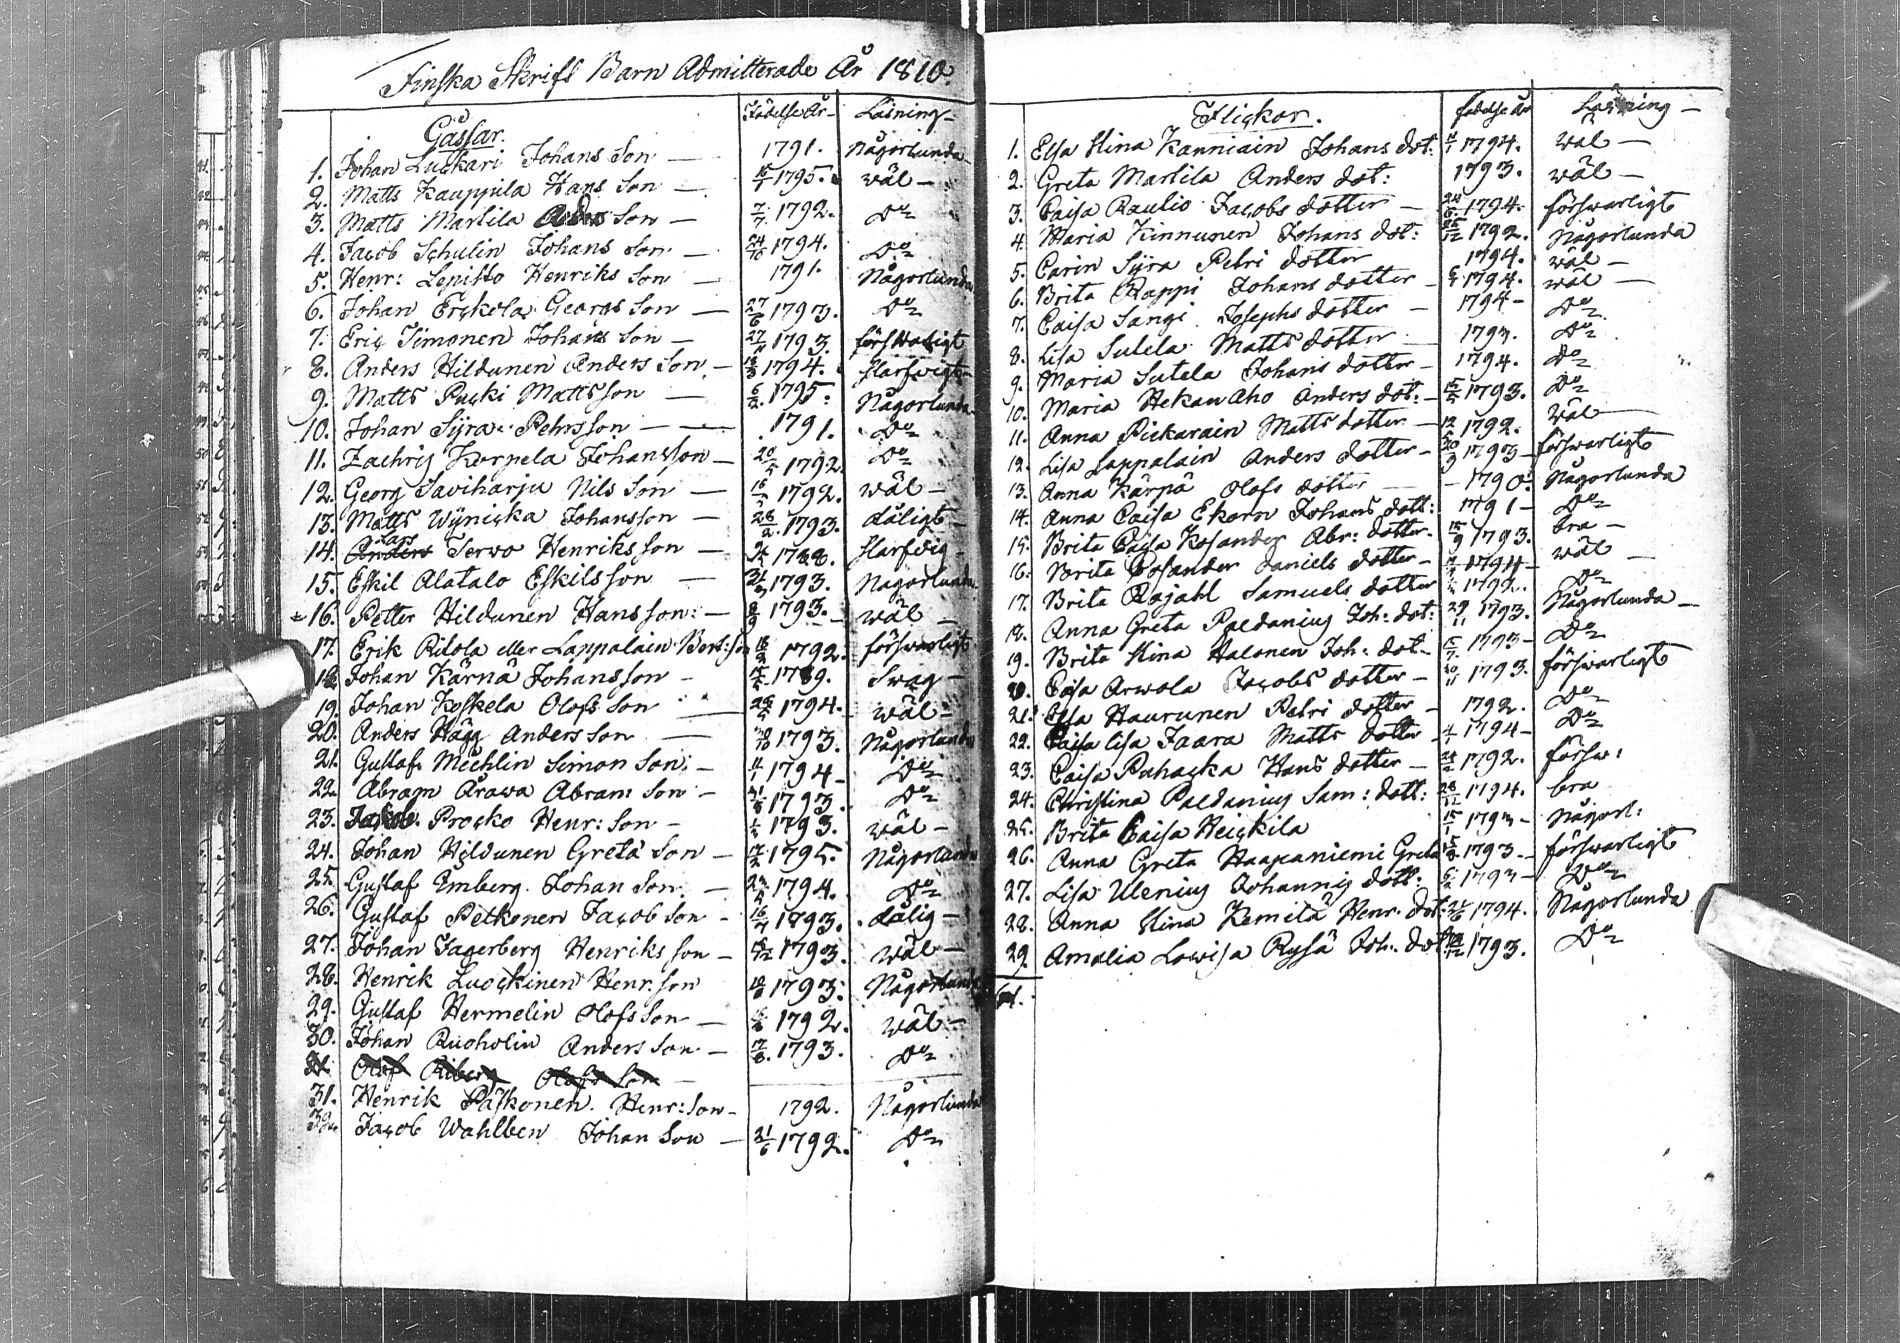 Finska Skrift Barn Admitterade År 1810.
Gåssar. Födelse År Läsning
1. Johan Luckari Johans Son 1791. Någorlunda
2. Matts Kauppila Hans Son 1795. wäl
3. Matts Martila Son 7/7 1792. Do
4. Jacob Schulin Johans Son 24/10 1794. Do
5. Henr: Lepistö Henriks Son 1791. Någorlunda
6. Johan Erckola Georgs Son 27/6 1793. Do
7. Eric Timonen Johans Son 1793. förswarligt
8. Anders Hildunen Anders Son 1794. slarfwigt
9. Matts Pucki Mattsson 6/2 1795. Någorlunda
10. Johan Syra Pehrsson 1791. Do
11. Zachris Korpela Johansson 20/5 1792. Do
12. Georg Saviharju Nils Son 1792. wäl
13. Matts Wynicka Johansson 28/2 1793. dåligt
14. Lars Serwo Henriksson 1788. slarfwig
15. Eskil Alatalo Eskilsson 1793. Någorlunda
16. Petter Hildunen Hansson: 8/9 1793. wäl
17. Erik Ritola eller Lappalain 1792. förswarligt
18. Johan Kärnä Johansson 1789. Swag
19. Johan Koskela Olofs Son 1794. wäl
20. Anders Hägg Anders Son 1793. Någorlunda
21. Gustaf Mechlin Simon Son: 1794 Do
22. Abram Arawa Abram Son 1793. Do
23. Jacob Procko Henr: Son 1793. wäl
24. Johan Hildunen Greta Son 1795. Någorlunda
25. Gustaf Emberg Johan Son 1794. Do
26. Gustaf Petkonen Jacob Son 1793. dålig
27. Johan Fagerberg Henriks Son 1793. wäl
28. Henrik Luockinen Henr: son 1793. Någorlunda
29. Gustaf Hermelin Olofs Son 1792. wäl
30. Johan Ruoholin Anders Son 17/8 1793. Do
31. Olof Riberg Olofs Son
31. Henrik Päskonen Henr: Son 1792. Någorlunda
32. Jacob Wahlben Johan Son 21/6 1792. Do
Flickor. födelse År Läsning
1. Elsa Stina Kanniain Johans dot: 1794. wäl
2. Greta Martila Anders dot: 1793. wäl
3. Caisa Raulio Jacobs dotter 1794. förswarligt
4. Maria Kinnunen Johans dot: 1792. Någorlunda
5. Carin Syra Petri dotter 1794. wäl
6. Brita Happi Johans dotter 1794. wäl
7. Caisa Sangi Josephs dotter 1794 Do
8. Lisa Sutela Matts dotter 1793. Do
9. Maria Sutela Johans dotter 1794. Do
10. Maria Hekanaho Anders dot: 1793. Do
11. Anna Pickarain Matts dotter 1792. wäl
12. Lisa Lappalain Anders dotter 1793 förswarligt
13. Anna Kärpä Olofs dotter 1790. Någorlunda
14. Anna Caisa Ekorn Johans dott: 1791 Do
15. Brita Caisa Kosander Abr: dotter 15/9 1793. bra
16. Brita Cosander Daniels dotter 1794 wäl
17. Brita Rajahl Samuels dotter 1792. Do
18. Anna Greta Paldanius Joh: dot: 29/11 1793. Någorlunda
19. Brita Stina Halonen Joh: dot 15/7 1793 Do
20. Caisa Arwola Jacobs dotter 1793. förswarligt
21. Elsa Haurunen Petri dotter 1792. Do
22. Caisa Lisa Jaara Matts dotter 1794 Do
23. Caisa Puhacka Hans dotter 1792. försw:
24. Christina Paldanius Sam: dott: 28/12 1794. bra
25. Brita Caisa Heickila 15/1 1793 Någorl:
26. Anna Greta Haapaniemi Greta 1793 förswarligt
27. Lisa Ulenius Johannis dott: 1793 Do
28. Anna Stina Kemilä Henr. dot: 1794. Någorlunda
29. Amalia Lowisa Rysä Joh: dot 1793. Do